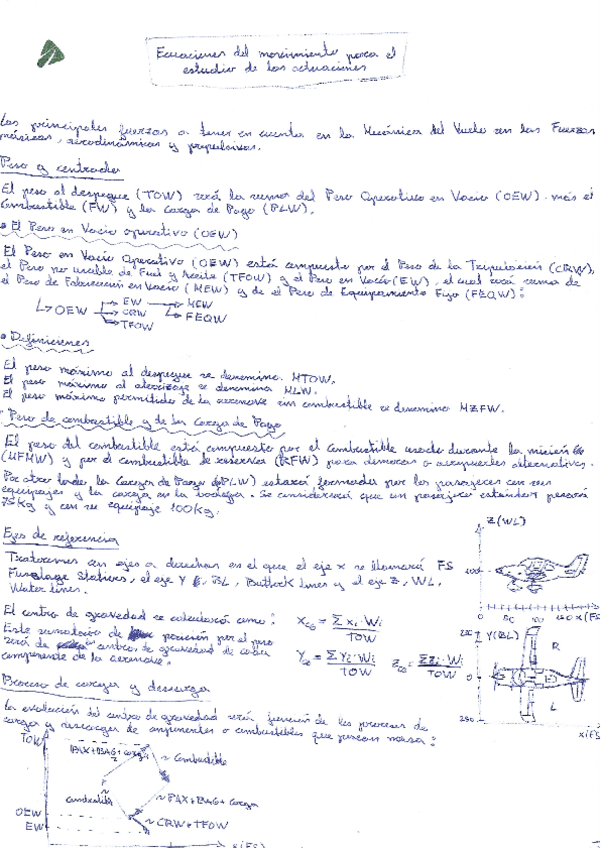 Ecuaciones del movimiento para el
estudio de las actuaciones
Las principales fuerzas a tener en cuenta en la Mecánica del Vuelo son las Fuerzas
másicas, aerodinámicas y propulsivas.
Peso y centrado
El peso al despegue (TOW) será la suma del Peso Operativo en Vacío (OEW) más el
Combustible (FW) y la Carga de Pago (PLW).
• El Peso en Vacío operativo (OEW)
El Peso en Vacío Operativo (OEW) está compuesto por el Peso de la Tripulación (CRW),
el Peso no usable de Fuel y Aceite (TFOW) y el Peso en Vacío (EW), el cual será suma de
el Peso de Fabricación en Vacío (MEW) y de el Peso de Equipamiento Fijo (FEQW):
OEW → EW → MEW
CRW → FEQW
TFOW
• Definiciones
El peso máximo al despegue se denomina MTOW.
El peso máximo al aterrizaje se denomina MLW.
El peso máximo permitido de la aeronave sin combustible se denomina MZFW.
• Peso de combustible y de la Carga de Pago
El peso del combustible está compuesto por el combustible usado durante la misión
(MFMW) y por el combustible de reserva (RFW) para demoras o aeropuertos alternativos.
Por otro lado, la Carga de Pago (PLW) estará formada por los pasajeros con sus
equipajes y la carga en la bodega. Se considerará que un pasajero estándar pesará
75kg y con su equipaje 100kg.
Ejes de referencia
Trataremos con ejes a derechas en el que el eje x se llamará FS
Fuselage Stations, el eje Y BL, Buttock Lines y el eje Z, WL.
Water lines.
El centro de gravedad se calculará como:
Este sumatorio de posición por el peso
será de centros de gravedad de cada
componente de la aeronave.
X_CG = Σ xᵢ·Wᵢ / TOW
Y_CG = Σ Yᵢ·Wᵢ / TOW
Z_CG = Σ Zᵢ·Wᵢ / TOW
Z(WL)
100
0 50
X(FS)
Y(BL)
R
0
L
x(FS)
Proceso de carga y descarga
La evolución del centro de gravedad será función de los procesos de
carga y descarga de componentes o combustibles que posean masa:
TOW
PAX+BAG+carga
~ Combustible
combustible
~ PAX+BAG+carga
OEW
~ CRW+TFOW
EW
x(FS)